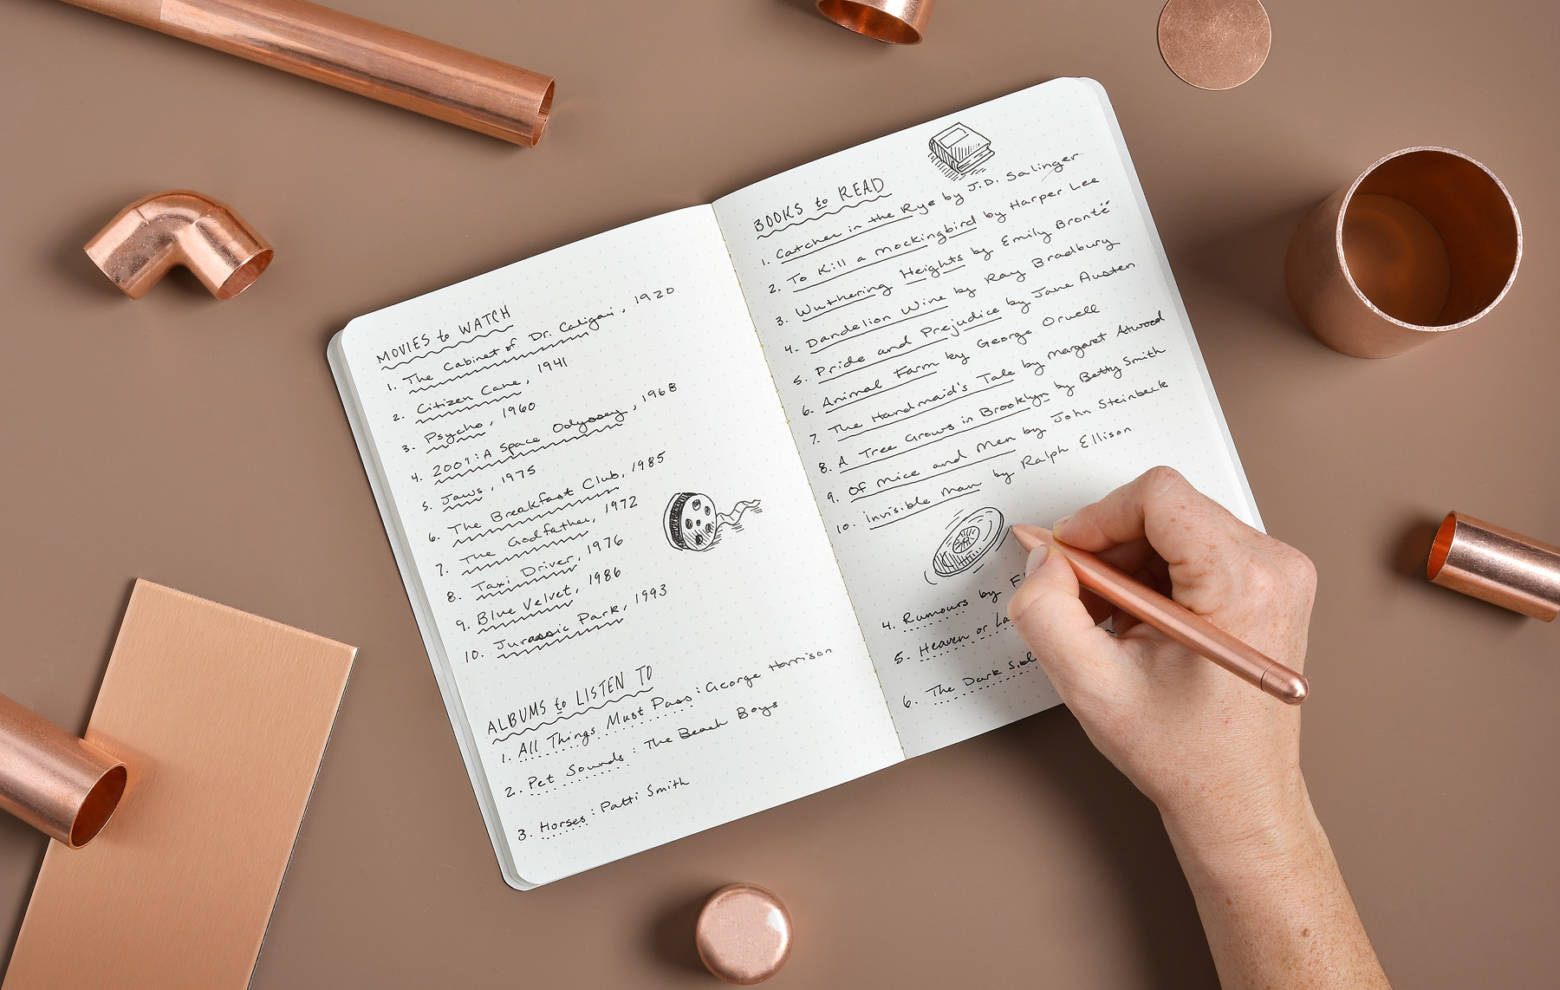 MOVIES to WATCH
1. The Cabinet of Dr. Caligari, 1920
2. Citizen Cane, 1941
3. Psycho, 1960
4. 2001: A Space Odyssey, 1968
5. Jaws, 1975
6. The Breakfast Club, 1985
7. The Godfather, 1972
8. Taxi Driver, 1976
9. Blue Velvet, 1986
10. Jurassic Park, 1993
ALBUMS to LISTEN TO
1. All Things Must Pass: George Harrison
2. Pet Sounds: The Beach Boys
3. Horses: Patti Smith
BOOKS to READ
1. Catcher in the Rye by J.D. Salinger
2. To Kill a mockingbird by Harper Lee
3. Wuthering Heights by Emily Brontë
4. Dandelion Wine by Ray Bradbury
5. Pride and Prejudice by Jane Austen
6. Animal Farm by George Orwell
7. The Handmaid's Tale by Margaret Atwood
8. A Tree Grows in Brooklyn by Betty Smith
9. Of Mice and Men by John Steinbeck
10. Invisible Man by Ralph Ellison
4. Rumours by
5. Heaven or
6. The Dark